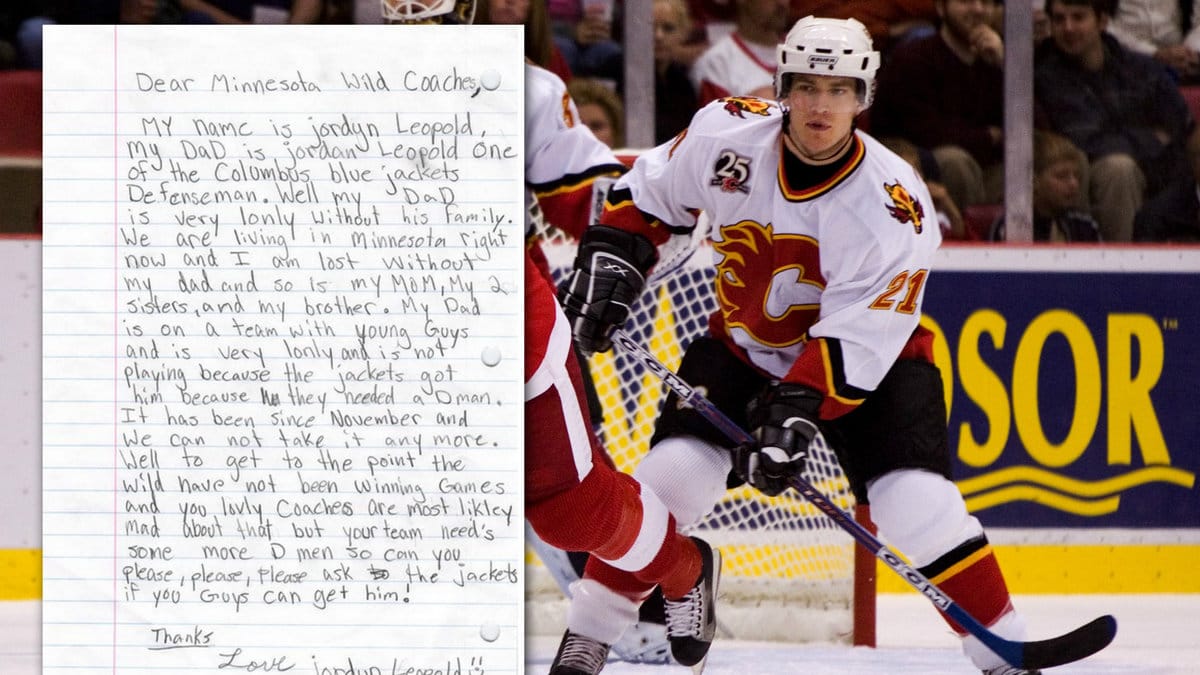 Dear Minnesota Wild Coaches,
MY name is jordyn Leopold,
my DaD is jordan Leopold one
of the Columbus blue jackets
Defenseman. Well my DaD
is very lonly without his family.
We are living in Minnesota right
now and I am lost without
my dad and so is my MOM, My 2
sisters, and my brother. My Dad
is on a team with young Guys
and is very lonly and is not
playing because the jackets got
him because they needed a Dman.
It has been since November and
we can not take it any more.
Well to get to the point the
wild have not been winning Games
and you lovly Coaches are most likley
mad about that but your team need's
some more D men so can you
please, please, Please ask the jackets
if you Guys can get him!
Thanks
Love jordyn Leopold
BAUER
25
C
21
CCM
CCM
DSOR™